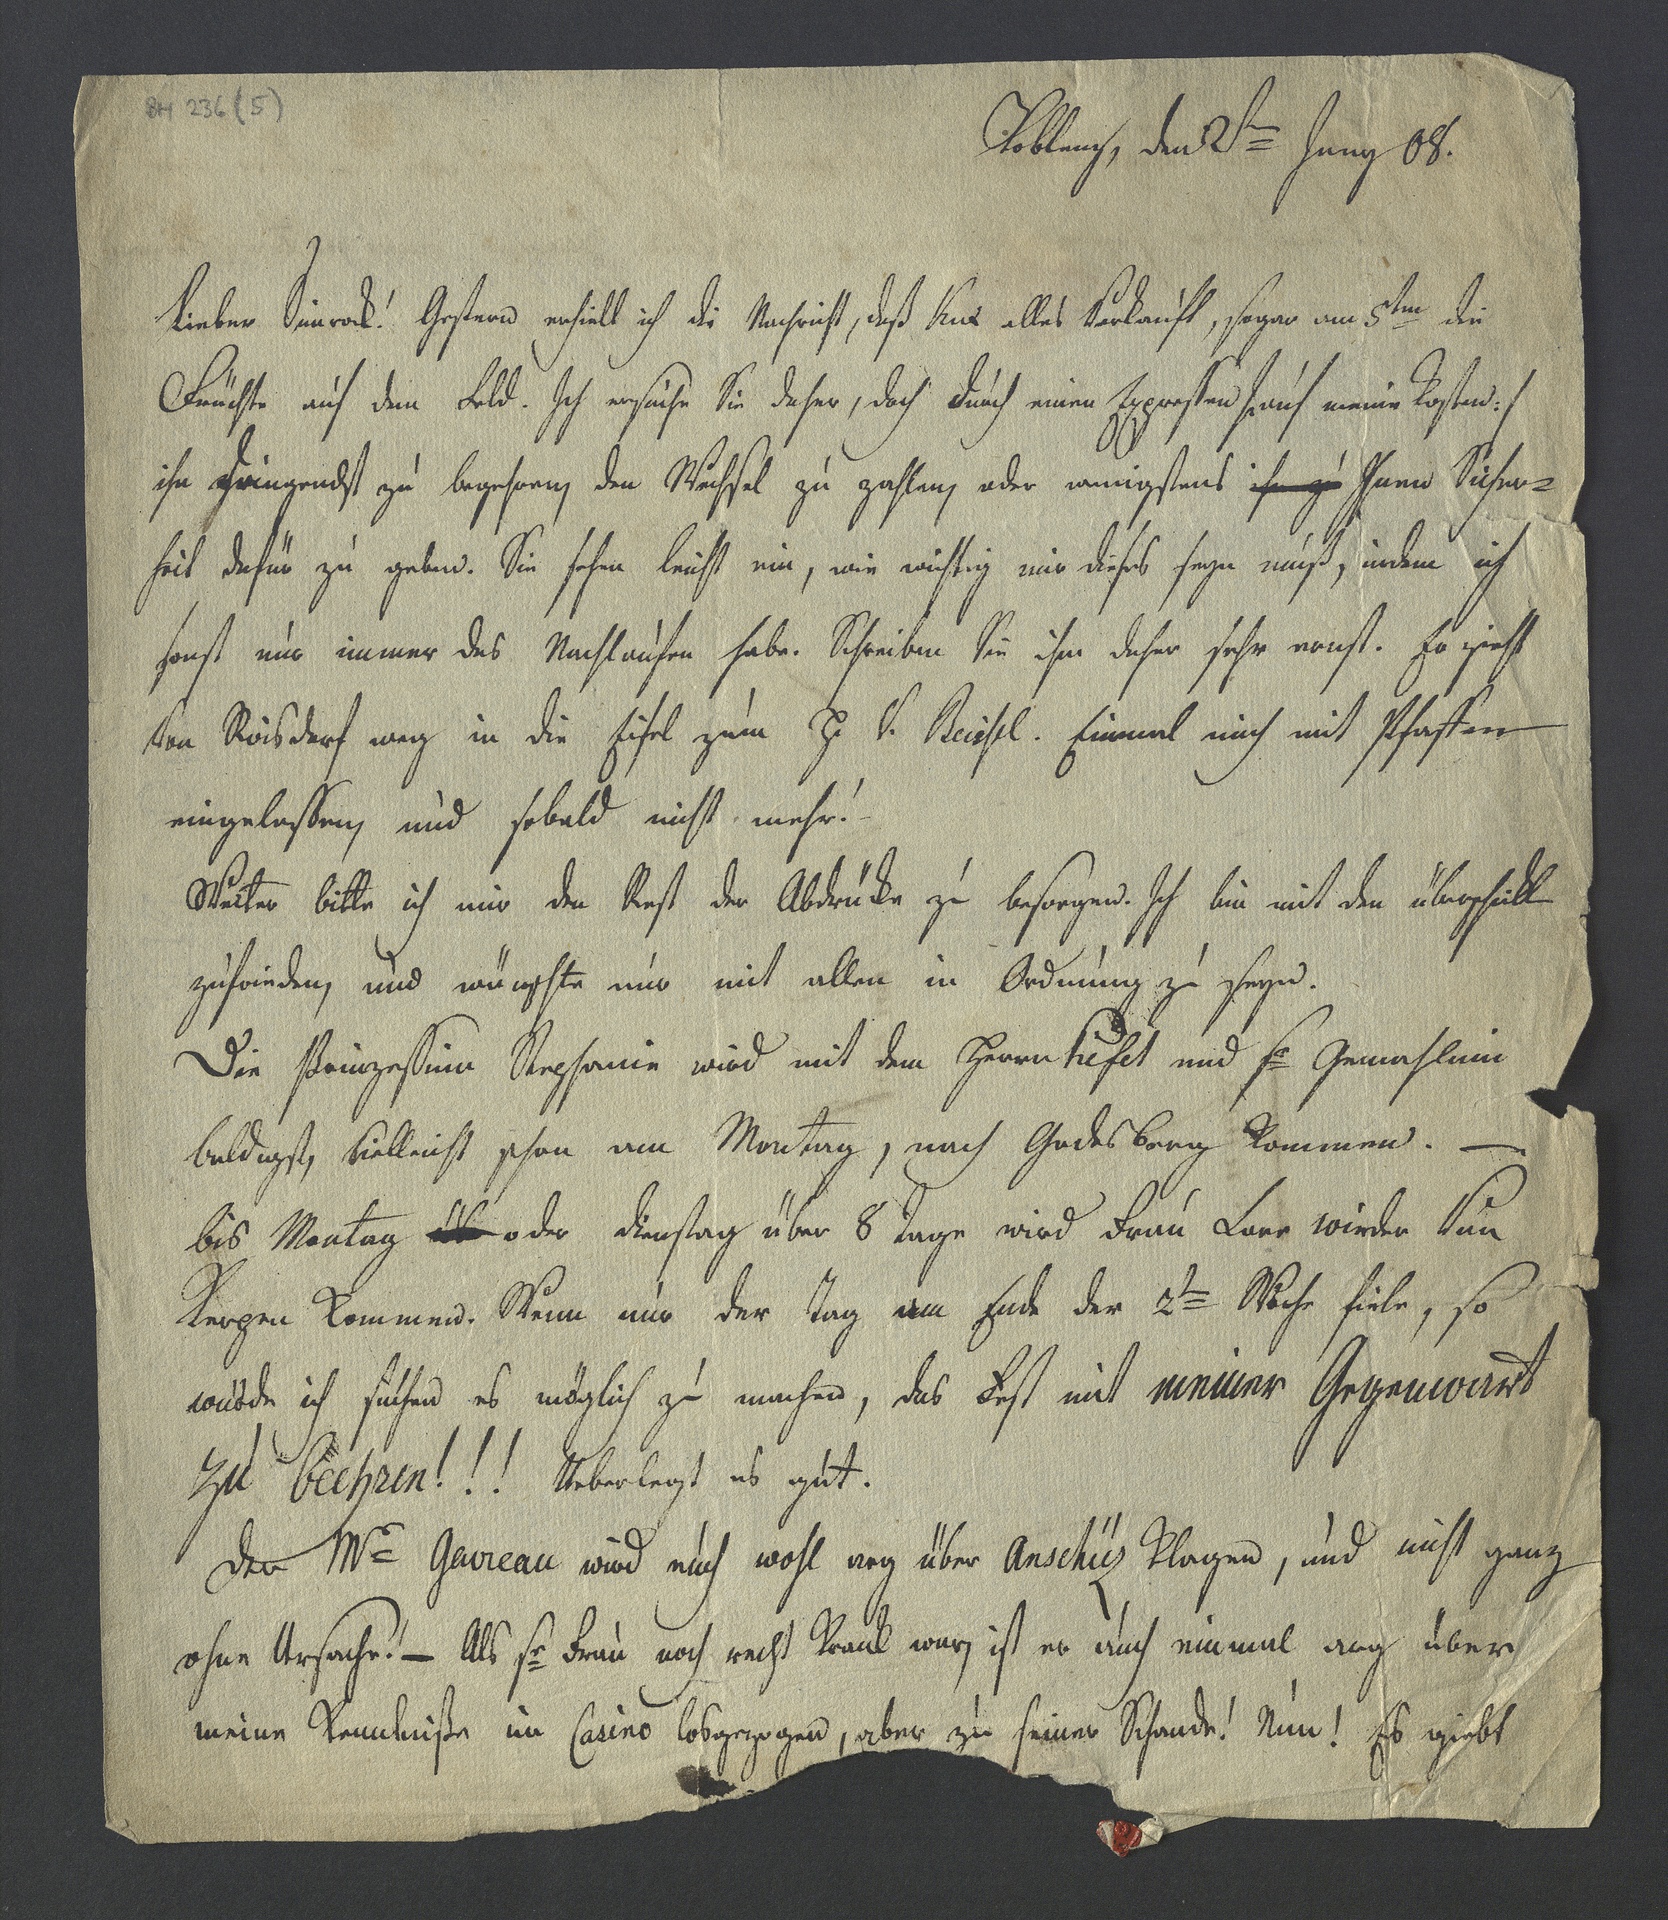 BH 236(5)
Koblenz, den 2t Juny 08.
Lieber Simrock! Gestern erhielt ich die Nachricht, daß alles verkauft, sogar am 5ten die
Früchte auf dem Feld. Ich ersuche Sie daher, doch durch einen Expressen /: auf meine Kosten :/
ihn dringendst zu begehren, den Wechsel zu zahlen, oder wenigstens Ihnen Sicher=
heit dafür zu geben. Sie sehen leicht ein, wie wichtig mir dieses seyn muß, indem ich
sonst nur immer das Nachlaufen habe. Schreiben Sie ihm daher sehr ernst. Er zieht
von Roisdorf weg in die Eifel zum H. v. Beissel. Einmal mich mit Pfaffen
eingelassen, und sobald nicht mehr!
Weiter bitte ich mir den Rest der Abdrücke zu besorgen. Ich bin mit den überschickten
zufrieden, und wünschte nur mit allen in Ordnung zu seyn.
Die Prinzessinn Stephanie wird mit dem Herrn und sr Gemahlinn
baldigst, vielleicht schon am Montag, nach Godesberg kommen. —
bis Montag oder Dienstag über 8 Tage wird Frau wieder von
Kerpen kommen. Wenn nur der Tag am Ende der 2ten Woche fiele, so
würde ich suchen es möglich zu machen, das Fest mit meiner Gegenwart
zu beehren!!! Ueberlegt es gut.
Der Mr Gavreau wird euch wohl arg über Anschüz klagen, und nicht ganz
ohne Ursache! — Als sr Frau noch recht krank war, ist er auch einmal arg über
meine Kenntniße im Casino losgezogen, aber zu seiner Schande! Nun! Es giebt